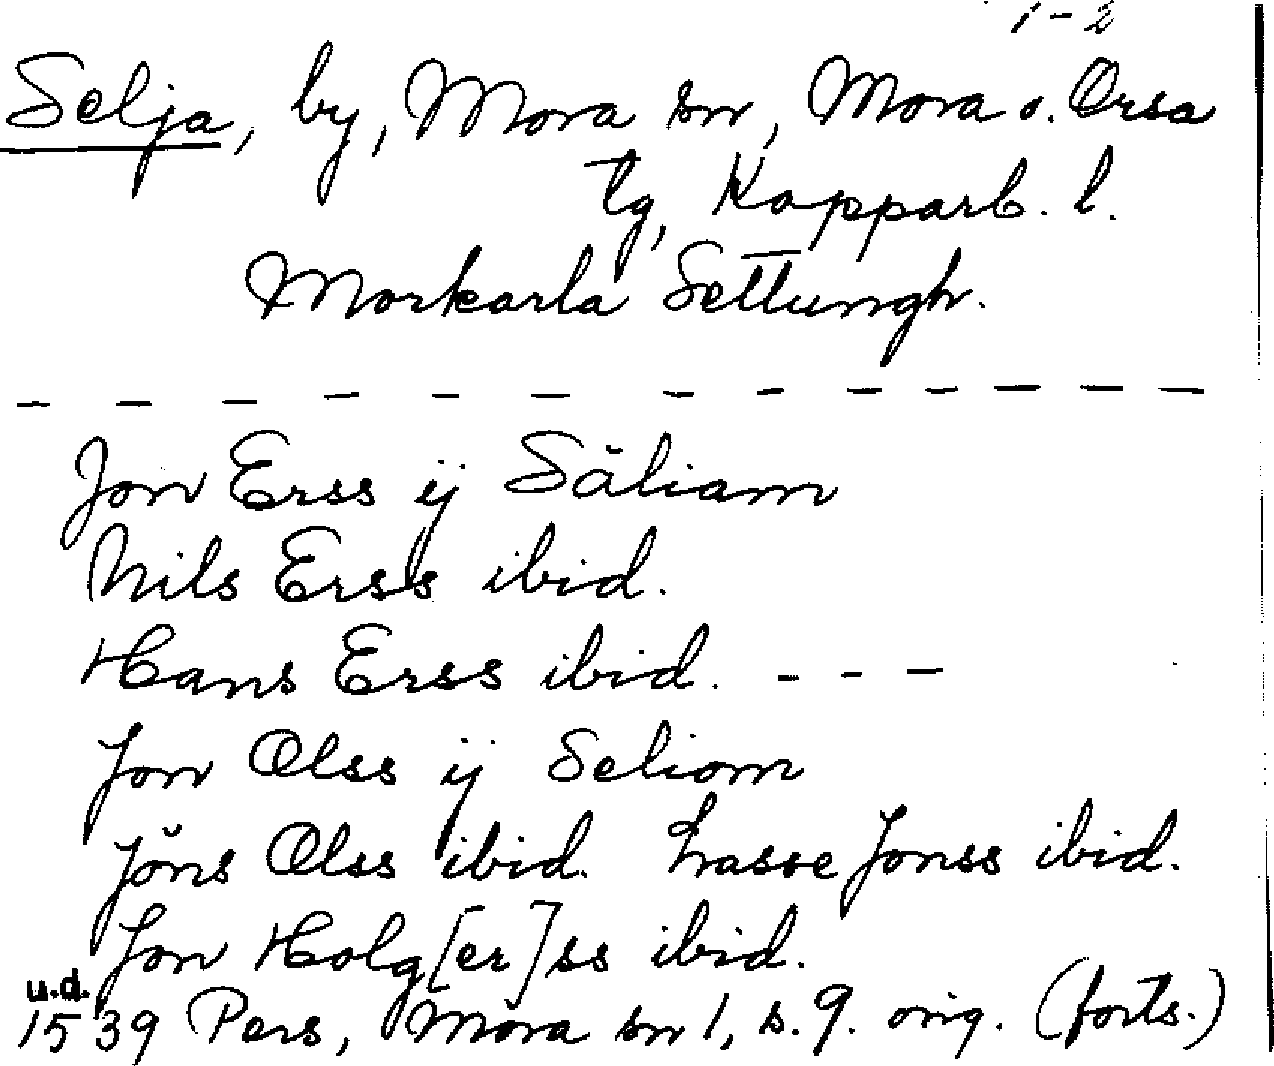 1-2
Selja, by, Mora sn, Mora o. Orsa
tg, Kopparb. l.
Morkarla Settungh.
- - - - - - - - - - - - -
Jon Erss ij Säliam
Nils Erss ibid.
Hans Erss ibid. - - -
Jon Olss ij Seliom
Jöns Olss ibid. Lasse Jonss ibid.
Jon Holg[er]ss ibid.
u.d.
1539 Pers, Mora sn 1, s. 9. orig. (forts.)